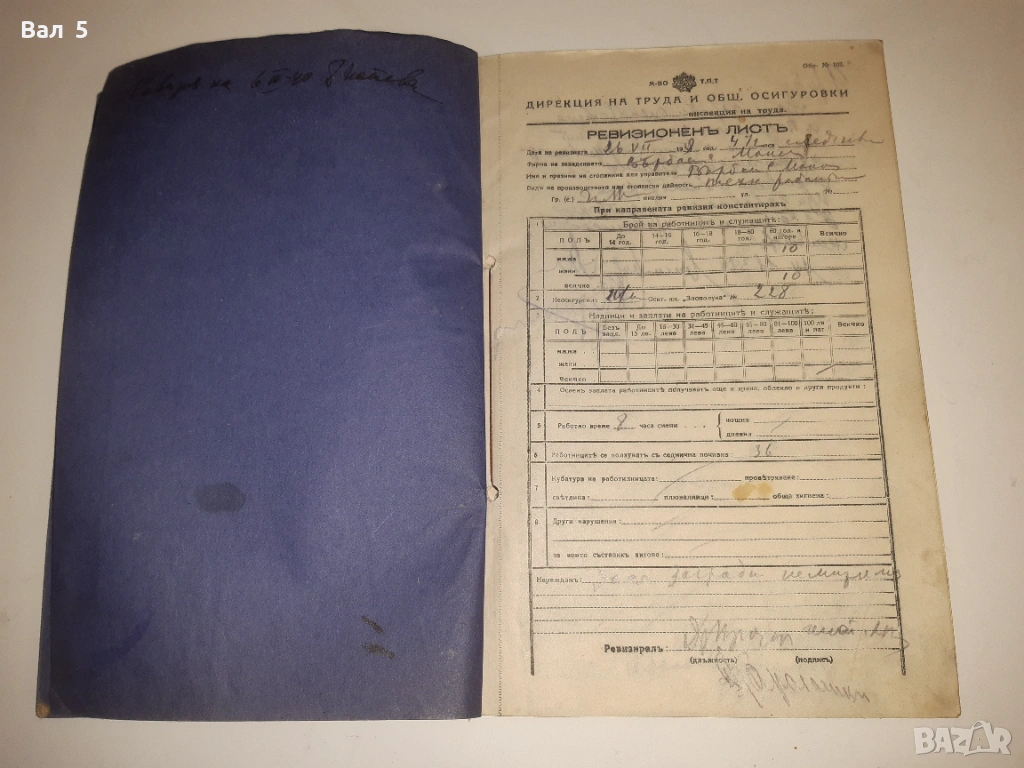 Вал 5
на 6 III-40
Обр. № 102
М-ВО Т.П.Т
ДИРЕКЦИЯ НА ТРУДА И ОБЩ. ОСИГУРОВКИ
инспекция на труда.
РЕВИЗИОНЕНЪ ЛИСТЪ
Дата на ревизията 26 VII год.
Фирма на заведението
Име и презиме на стопанина или управителя
Видъ на производството или стопански дейность
Гр. (с.) ул. №
При направената ревизия констатирахъ
1 Брой на работницитѣ и служащитѣ:
ПОЛЪ До 14 год. 14—16 год. 16—18 год. 18—60 год. 60 год. и нагоре Всичко
мѫже 10
жени
всичко 10
2 Неосигурени: Осиг. кн. „Злополука" № 228
3 Надници и заплати на работницитѣ и служащитѣ:
ПОЛЪ Безъ запл. До 15 лв. 16—30 лева 31—45 лева 46—60 лева 61—80 лева 81—100 лева 100 лв и пов. Всичко
мѫже
жени
Всичко
4 Освенъ заплата работницитѣ получаватъ още и храна, облекло и други продукти:
5 Работно време 8 часа смени нощна
дневна
6 Работницитѣ се ползуватъ съ седмична почивка 36
7 Кубатура на работилницата: провѣтряване:
свѣтлина: плювалници: обща хигиена:
8 Други нарушения:
за които съставихъ актове:
Нареждамъ:
Ревизиралъ:
(длъжность) (подпись)
BAZAR